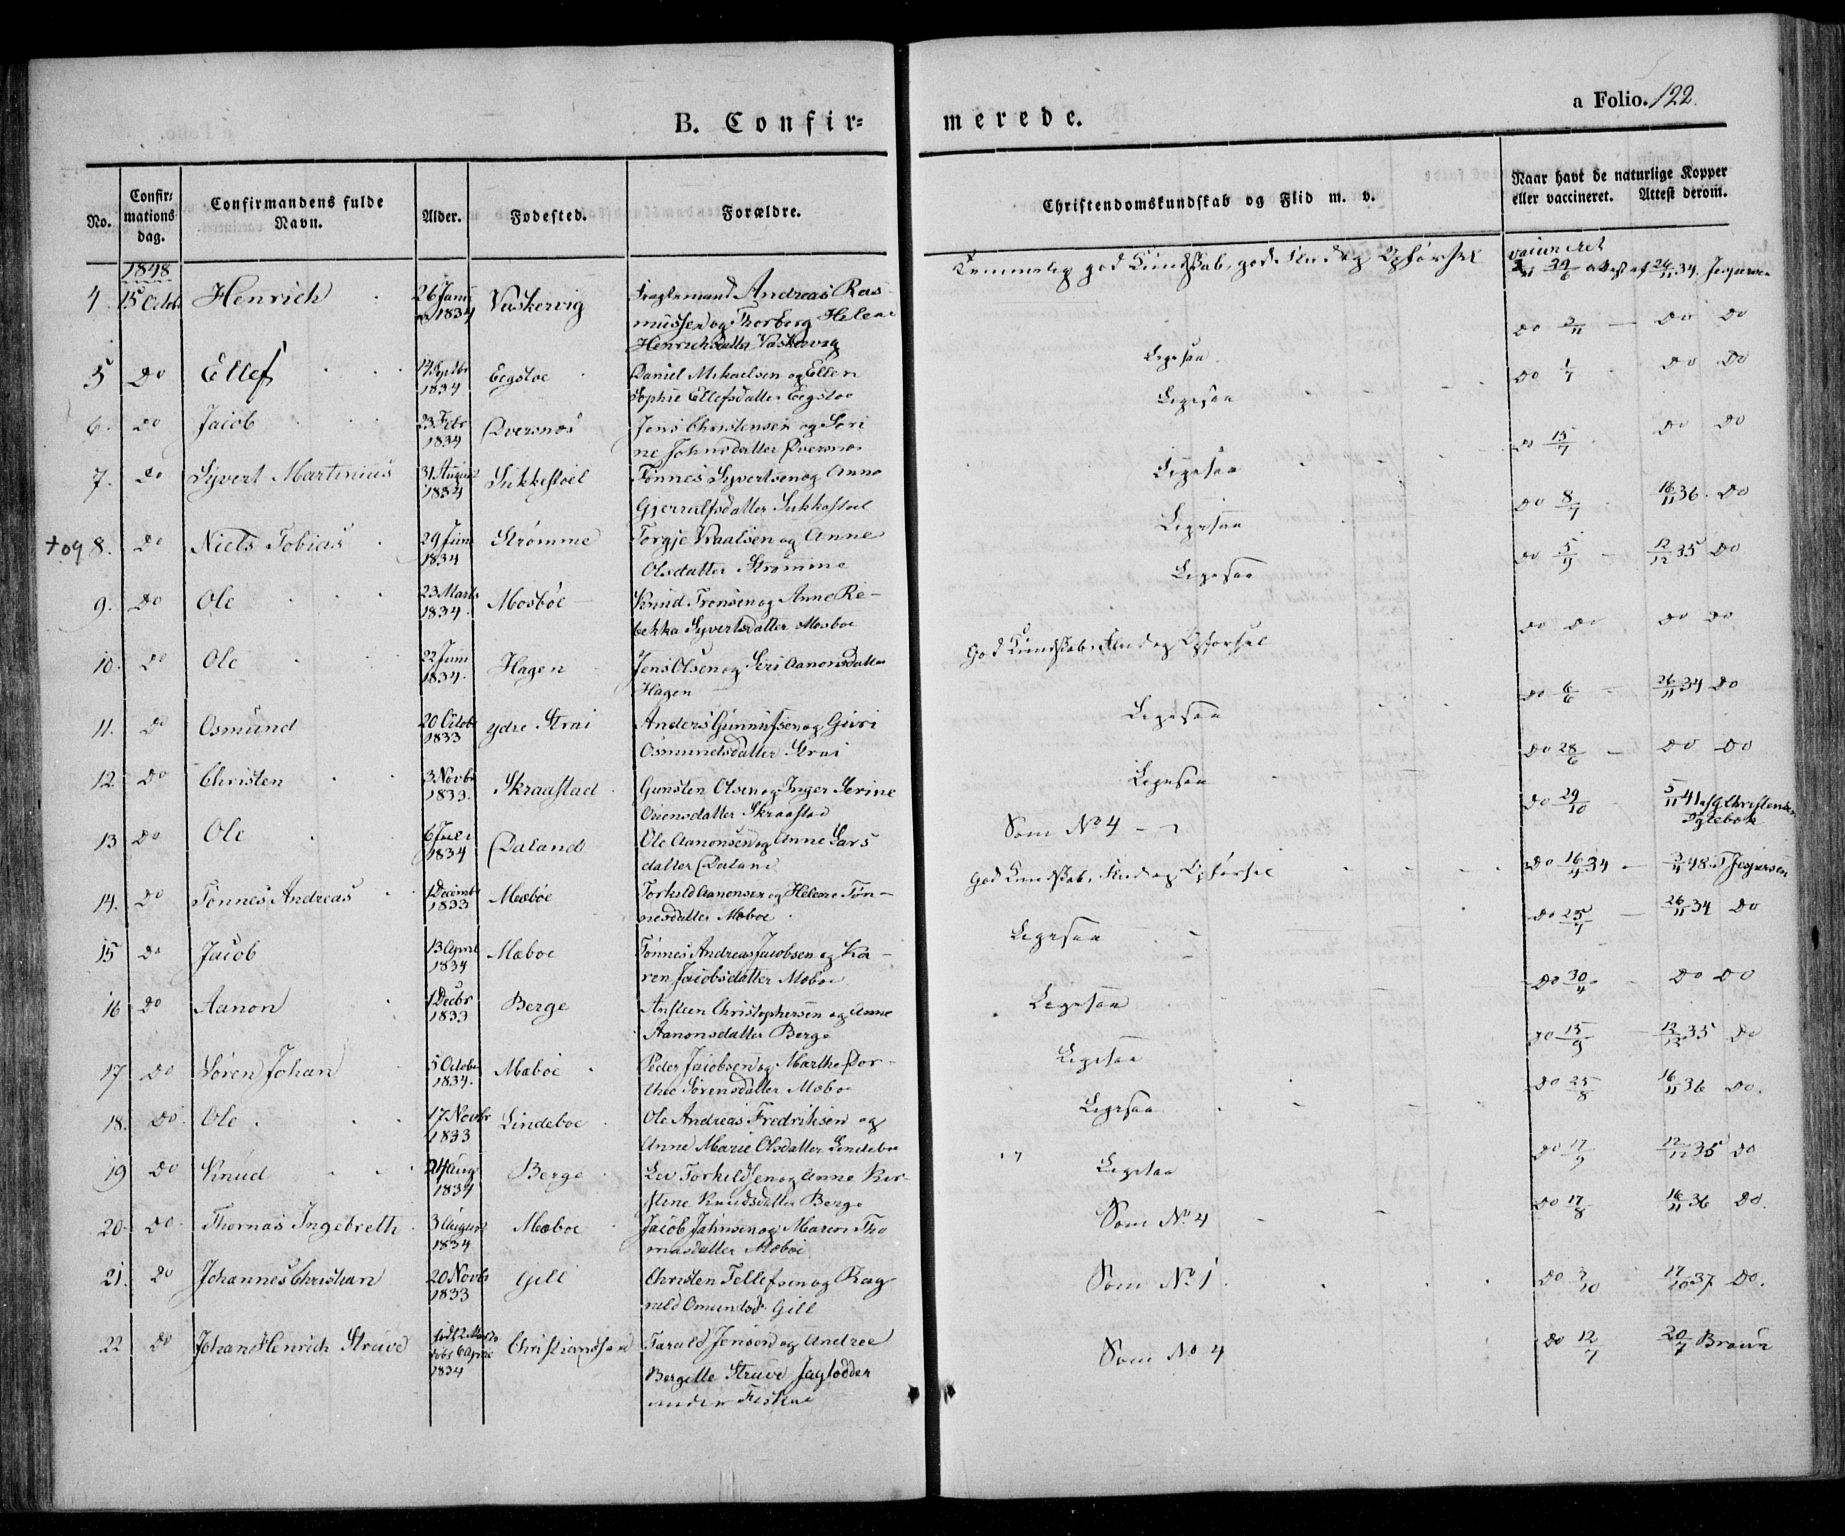 a Folio. 122.
B. Confir= merede.
No. Confirmations dag. Confirmandens fulde Navn. Alder. Fødested. Forældre. Christendomskundskab og Flid m. v. Naar havt de naturlige Kopper eller vaccineret. Attest derom.
1848
4. 15 Octbr Henrich 26 Juni 1834 Vaskervig Andreas Ras-
mussen og Thorberg Helene
Henrichsdatter Vaskevig
5 Do Ellef 1834 Eegstoe Daniel Mikaelsen og Ellen
Sophie Ellefsdatter Eegstoe Ligesaa
6. Do Jacob 23 Febr 1834 Dversnæs Jens Christensen og Seri
ne Johnsdatter Dversnæs Ligesaa
7. Do Syvert Martinius 31 August 1834 Sukkestoel Tønnes Syvertsen og Anna
Gjerulfsdatter Sukkestoel Ligesaa
+ og 8. Do Niels Tobias 29 Juni 1834 Strømme Torgje Vraalsen og Anne
Olsdatter Strømme Ligesaa
9. Do Ole 23 Marts 1834. Mosbøe Knud Tronsen og Anne Re-
bekka Syvertsdatter Mosboe Ligesaa
10. Do Ole 22 Juni 1834. Hagen Jens Olsen og Siri Aanonsdatter
Hagen God Kundskab, Flid og Opførsel
11. Do Osmund 20 Octob 1833 ydre Strai Anders Gunnufsen og Guri
Osmundsdatter Strai Ligesaa
12. Do Christen 3 Novbr 1833. Skraastad Gunsten Olsen og Inger Serine
Osiensdatter Skraastad Ligesaa
13 Do Ole 6 Juli 1834 Daland Ole Aanonsen og Anne Lars
datter Daland Som No 4
14. Do Tønnes Andreas 1 Decembr 1833 Mæbøe Torkild Aanonsen og Helene Tøn-
nesdatter Mæboe God Kundskab, Flid og Opførsel
15 Do Jacob 13 April 1834 Mæboe Tønnes Andreas Jacobsen og Ka-
ren Jacobsdatter Mæboe Ligesaa
16 Do Aanon 1 Decbr 1833 Berge Ansteen Christophersen og Anne
Aanonsdatter Berge Ligesaa
17 Do Søren Johan 5 Octobr 1834. Mæbøe Peder Jacobsen og Marthe Dor-
thee Sørensdatter Mæboe Ligesaa
18. Do Ole 17 Novbr 1833 Lindeboe Ole Andreas Fredriksen og
Anne Marie Olsdatter Lindeboe Ligesaa
19 Do Knud 24 Aug 1834 Berge Lev Torkildsen og Anne Kir-
stine Knudsdatter Berge Ligesaa
20. Do Thomas Ingebreth 3 August 1834 Mæboe Jacob Jahnsen og Maren Tho
masdatter Mæbøe Som No 4
21. Do Johannes Christian 20 Novbr 1833 Gill Christen Tellefsen og Rag
nild Omundsd. Gill Som No 1
22 Do Johan Henrich Struve 1834 Christiansand Tarald Jensen og Andrea
Bergitte Struve Jagtodden
under Fiskaa Som No 4
Temmelig god Kundskab, god Flid og Opførsel
vaccineret
attest af 26/11 34. Jespersen
Do 2/11 Do Do
Do 1/7 Do Do
Do 15/7 Do Do
Do 8/7 16/11 36. Do
Do 5/9 12/12 35 Do
Do Do Do Do
Do 6/6 26/11 34 Do
Do 28/6 Do Do
Do 29/10 5/11 41 af G Christensen
Do 16/4 34 3/4 48. Jespersen
Do 25/7 26/11 34 Do
Do 30/4 Do Do
Do 15/9 12/12 35 Do
Do 25/8 16/11 36 Do.
Do 17/9 12/12 35 Do
Do 17/8 16/11 36 Do.
Do 3/10 17/10 37. Do.
Do 12/7 20/7 Brown